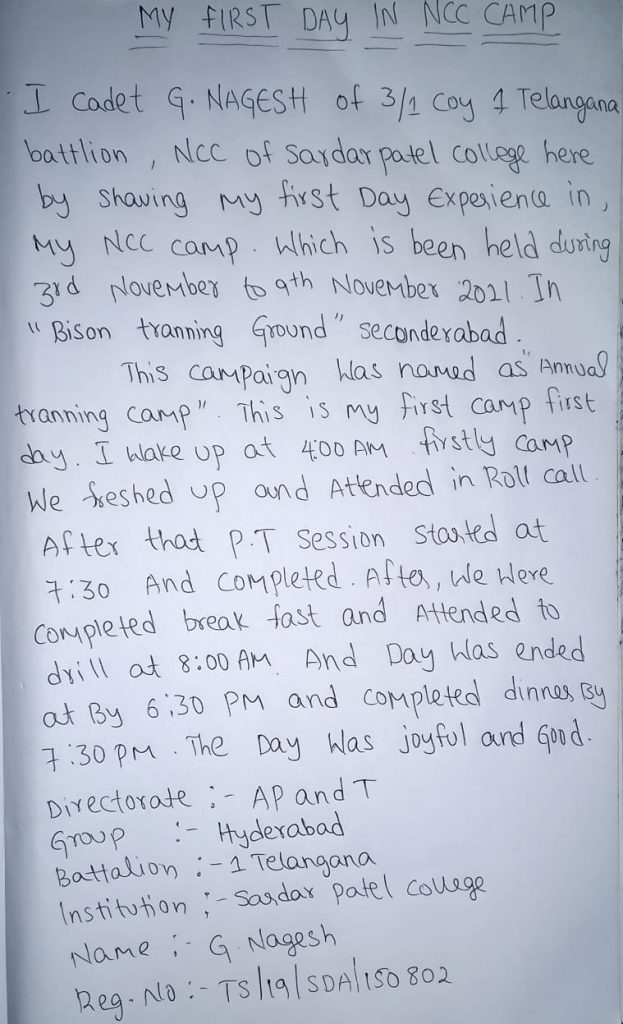 MY FIRST DAY IN NCC CAMP
I Cadet G. NAGESH of 3/1 Coy 1 Telangana
battlion , NCC of Sardar patel college here
by sharing My first Day Experience in ,
My NCC camp. Which is been held during
3rd November to 9th November 2021. In
"Bison tranning Ground" seconderabad.
This campaign Was named as "Annual
tranning camp". This is my first camp first
day. I Wake up at 4:00 AM firstly camp
We freshed up and Attended in Roll call.
After that P.T Session started at
7:30 And completed. After, We Were
completed break fast and Attended to
drill at 8:00 AM. And Day Was ended
at By 6:30 PM and completed dinner By
7:30 PM. The Day Was joyful and Good.
Directorate :- AP and T
Group :- Hyderabad
Battalion :- 1 Telangana
Institution :- Sardar Patel college
Name :- G. Nagesh
Reg. No :- TS/19/SDA/150802